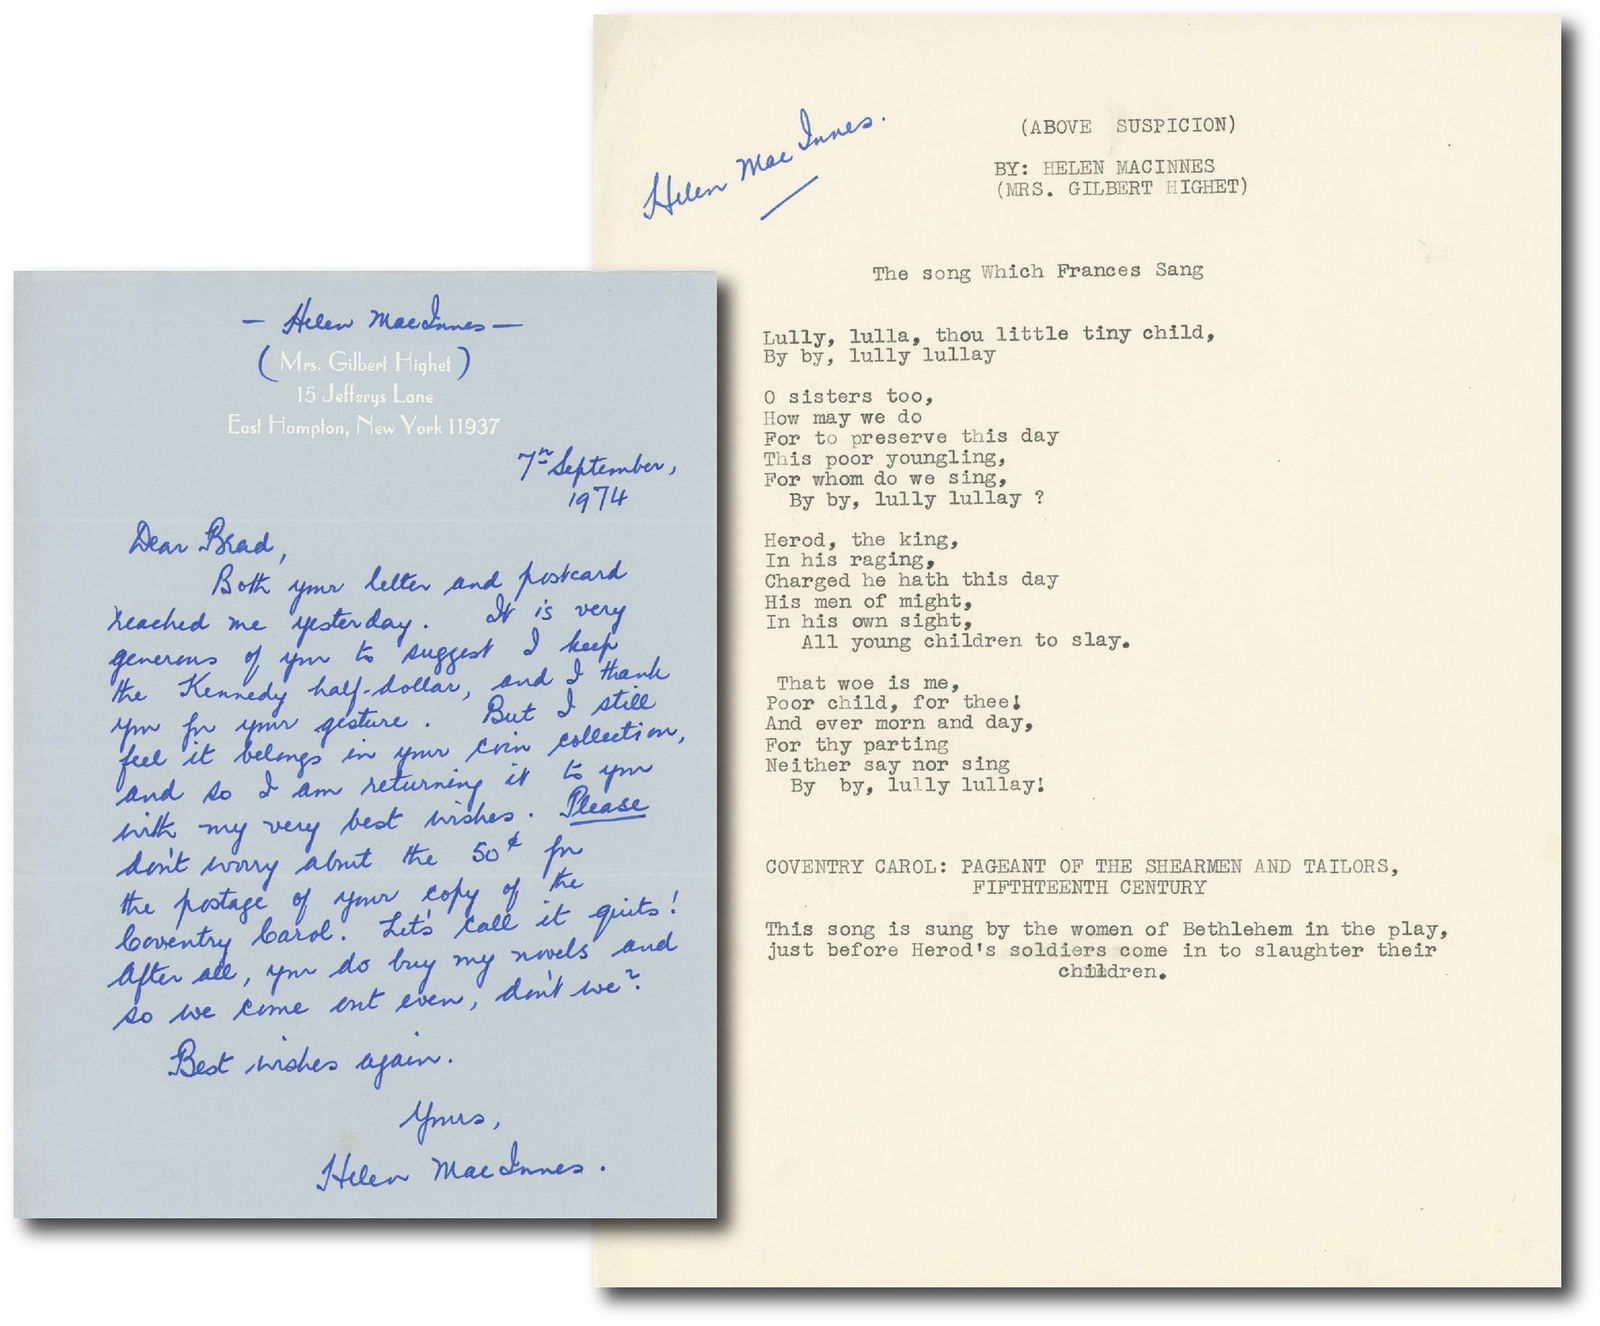 — Helen MacInnes —
(Mrs. Gilbert Highet)
15 Jefferys Lane
East Hampton, New York 11937
7th September,
1974
Dear Brad,
Both your letter and postcard
reached me yesterday. It is very
generous of you to suggest I keep
the Kennedy half-dollar, and I thank
you for your gesture. But I still
feel it belongs in your coin collection,
and so I am returning it to you
with my very best wishes. Please
don't worry about the 50¢ for
the postage of your copy of the
Coventry Carol. Let's call it quits!
After all, you do buy my novels and
so we come out even, don't we?
Best wishes again.
Yours,
Helen MacInnes.
Helen MacInnes.
(ABOVE SUSPICION)
BY: HELEN MACINNES
(MRS. GILBERT HIGHET)
The song Which Frances Sang
Lully, lulla, thou little tiny child,
By by, lully lullay
O sisters too,
How may we do
For to preserve this day
This poor youngling,
For whom do we sing,
By by, lully lullay ?
Herod, the king,
In his raging,
Charged he hath this day
His men of might,
In his own sight,
All young children to slay.
That woe is me,
Poor child, for thee!
And ever morn and day,
For thy parting
Neither say nor sing
By by, lully lullay!
COVENTRY CAROL: PAGEANT OF THE SHEARMEN AND TAILORS,
FIFTHTEENTH CENTURY
This song is sung by the women of Bethlehem in the play,
just before Herod's soldiers come in to slaughter their
children.